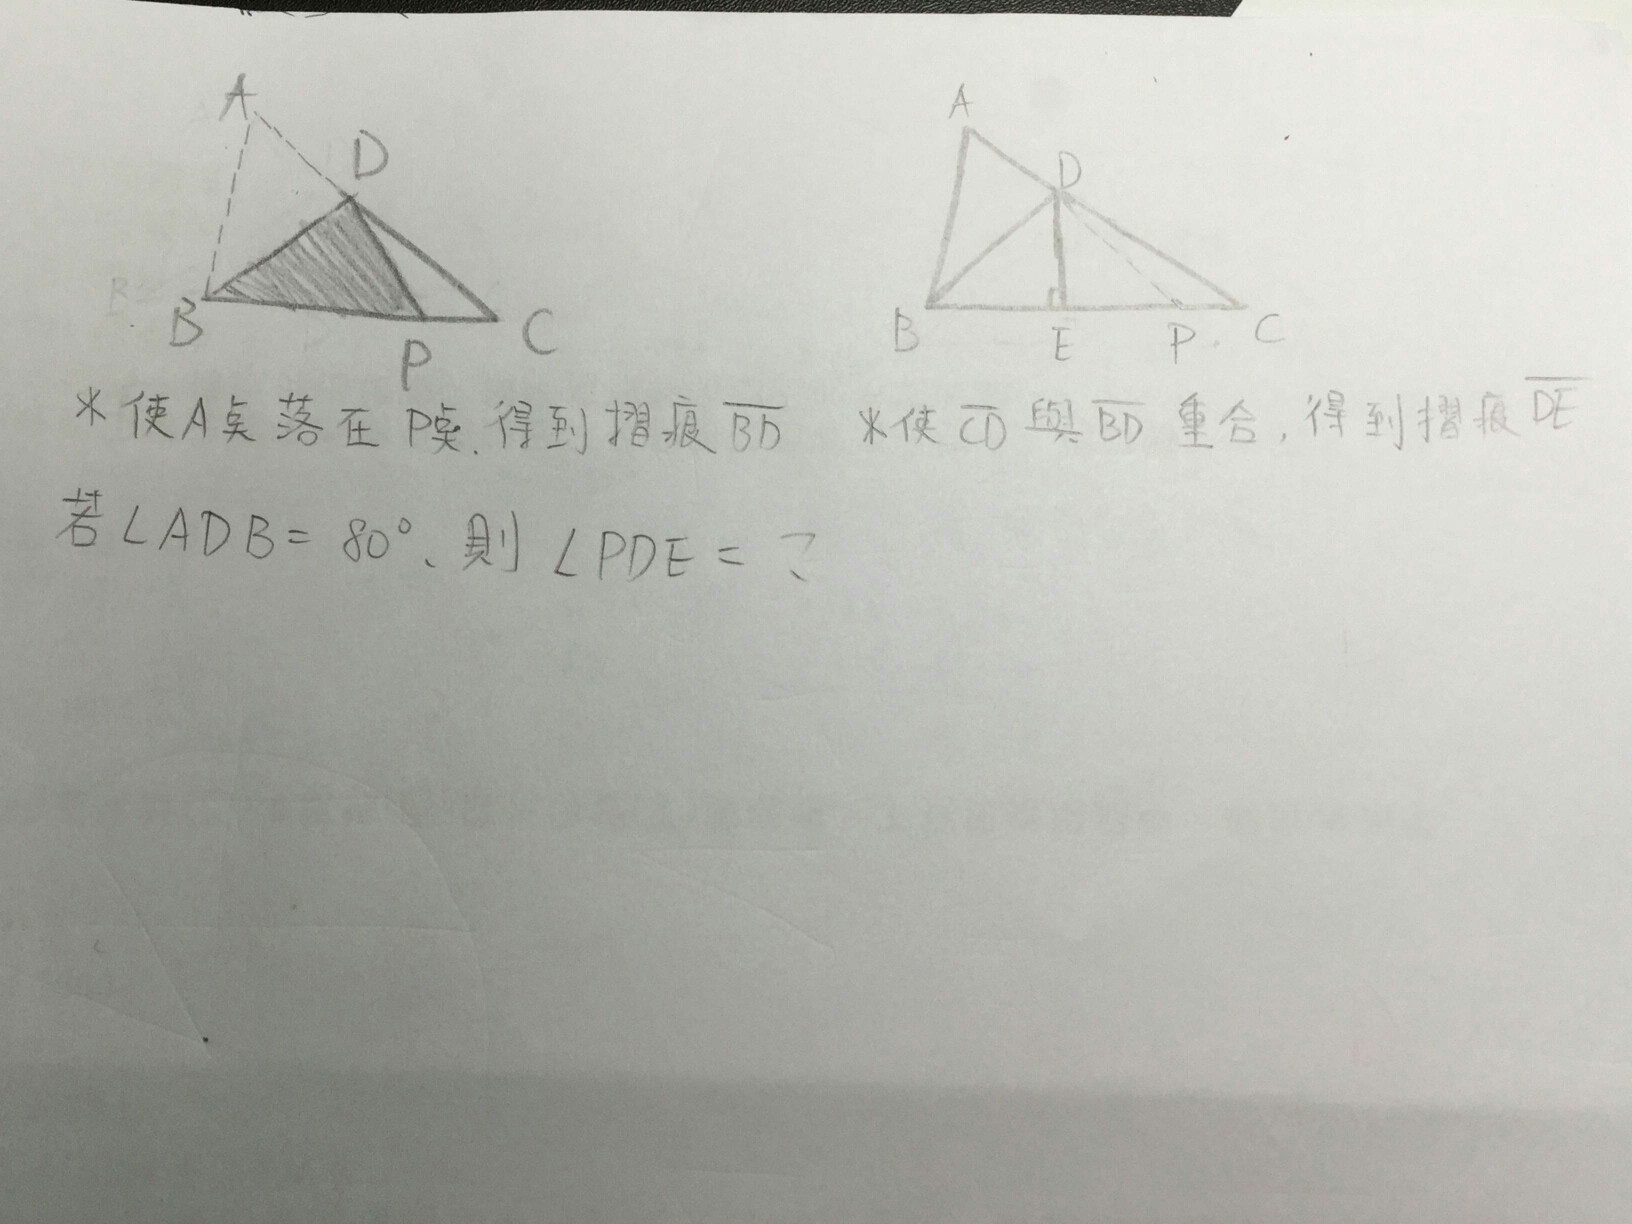 A
D
B
P
C
A
D
B
E
P
C
*使A點落在P點,得到摺痕BD
*使CD與BD重合,得到摺痕DE
若∠ADB=80°、則∠PDE=?